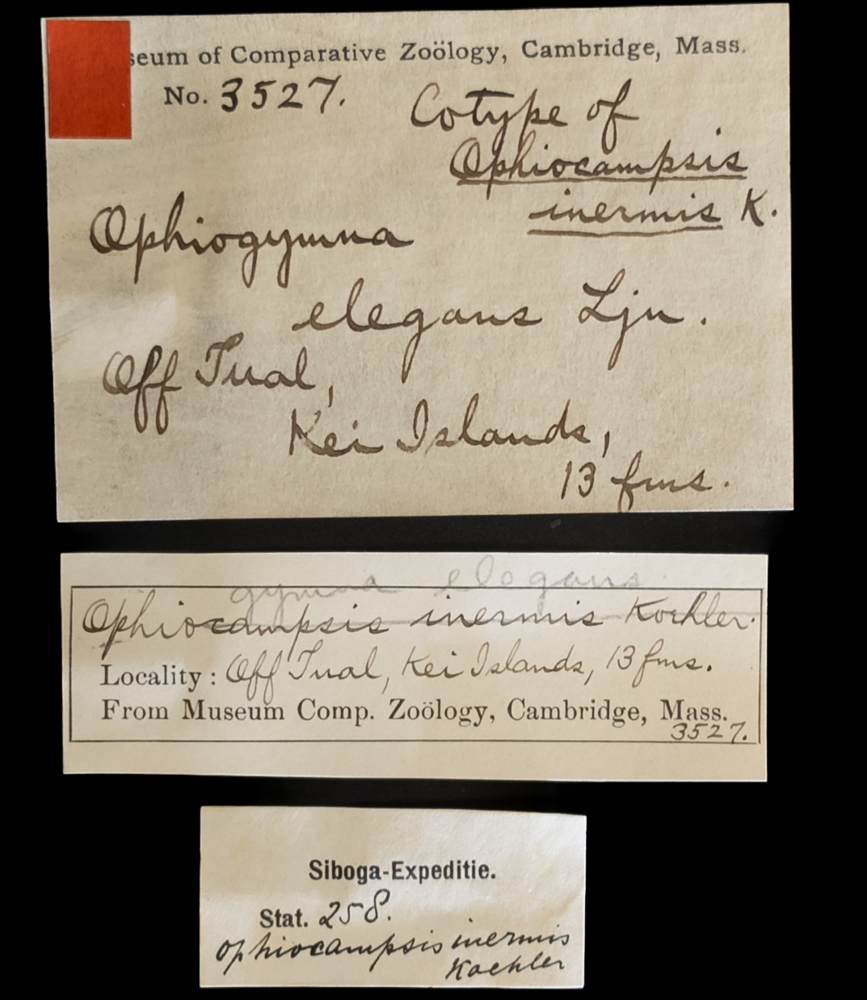 seum of Comparative Zoölogy, Cambridge, Mass.
No. 3527.
Cotype of
Ophiocampsis
inermis K.
Ophiogymna
elegans Ljn.
Off Tual,
Kei Islands,
13 fms.
gymna elegans
Ophiocampsis inermis Koehler.
Locality: Off Tual, Kei Islands, 13 fms.
From Museum Comp. Zoölogy, Cambridge, Mass.
3527.
Siboga-Expeditie.
Stat. 258.
Ophiocampsis inermis
Koehler